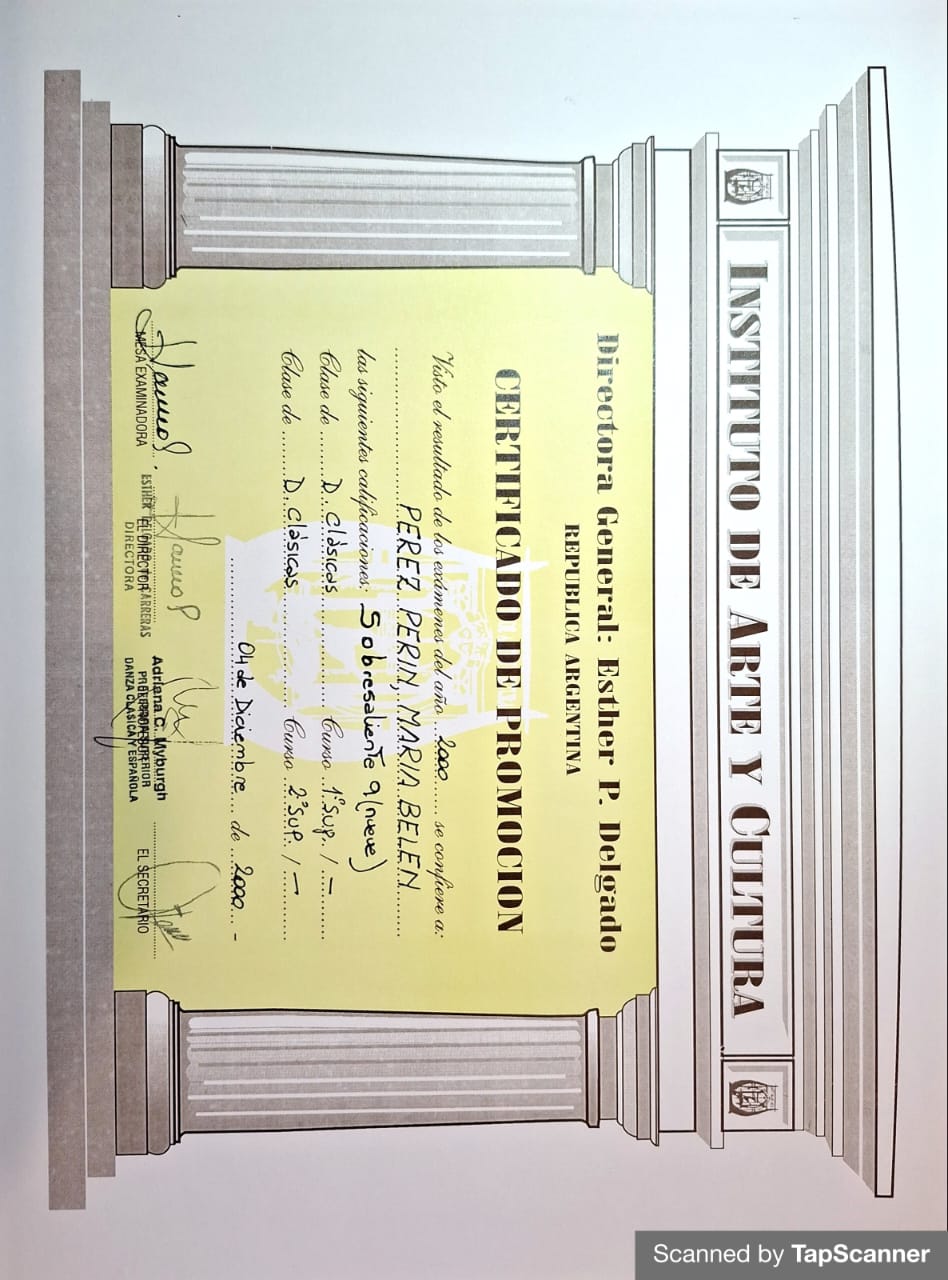 INSTITUTO DE ARTE Y CULTURA
Directora General: Esther P. Delgado
REPUBLICA ARGENTINA
CERTIFICADO DE PROMOCION
Visto el resultado de los exámenes del año 2000 se confiere a:
PEREZ PERIN, MARIA BELEN
las siguientes calificaciones: Sobresaliente 9 (nueve)
Clase de D. Clásicas Curso 1º Sup. / —
Clase de D. Clásicas Curso 2º Sup. / —
04 de Diciembre de 2000 -
MESA EXAMINADORA
ESTHER DELGADO CARRERAS
EL DIRECTOR
DIRECTORA
Adriana C. Myburgh
SUPERIOR
DANZA CLASICA Y ESPAÑOLA
EL SECRETARIO
Scanned by TapScanner